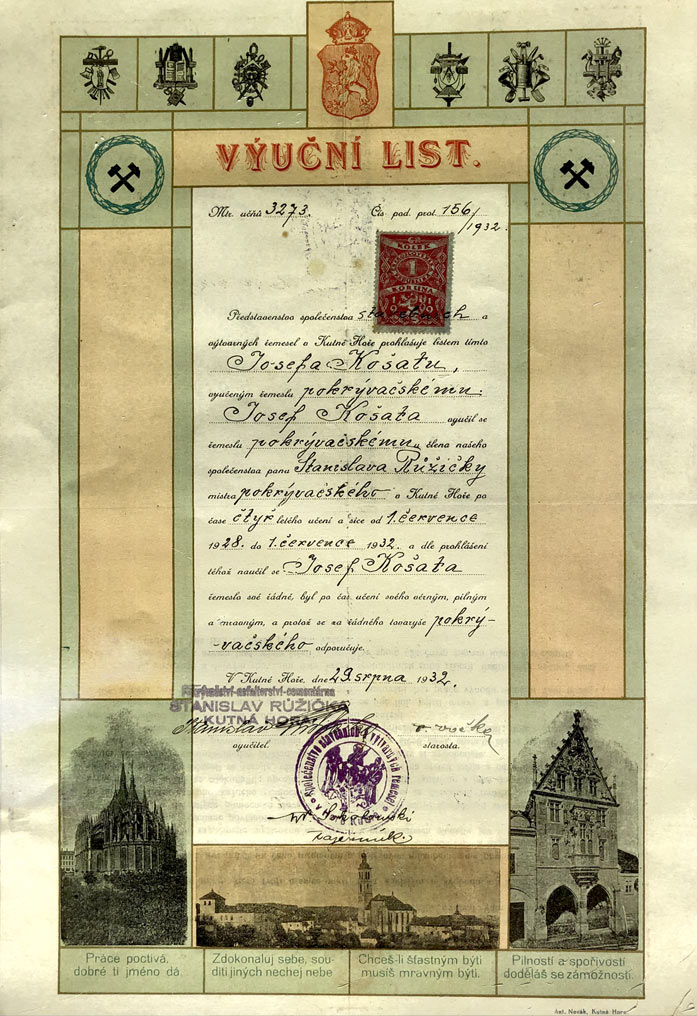 VÝUČNÍ LIST.
Mtr. učňů 3273.
Čís. pod. prot. 156/1932.
KOLEK
1
KORUNA
Představenstvo společenstva stavebních a
výtvarných řemesel v Kutné Hoře prohlašuje listem tímto
Josefa Košatu,
vyučeným řemeslu pokrývačskému.
Josef Košata vyučil se
řemeslu pokrývačskému u člena našeho
společenstva pana Stanislava Růžičky
mistra pokrývačského v Kutné Hoře po
čase čtyř letého učení a sice od 1. července
1928. do 1. července 1932. a dle prohlášení
téhož naučil se Josef Košata
řemeslo své řádně, byl po čas učení svého věrným, pilným
a mravným, a protož se za řádného tovaryše pokrý-
-vačského odporučuje.
V Kutné Hoře, dne 29. srpna 1932.
STANISLAV RŮŽIČKA
KUTNÁ HORA
Stanislav
vyučitel.
starosta.
Společenstvo stavebních a výtvarných řemesel
Práce poctivá,
dobré ti jméno dá.
Zdokonaluj sebe, sou-
diti jiných nechej nebe
Chceš-li šťastným býti
musíš mravným býti.
Pilností a spořivostí
doděláš se zámožnosti.
Ant. Novák, Kutná Hora.